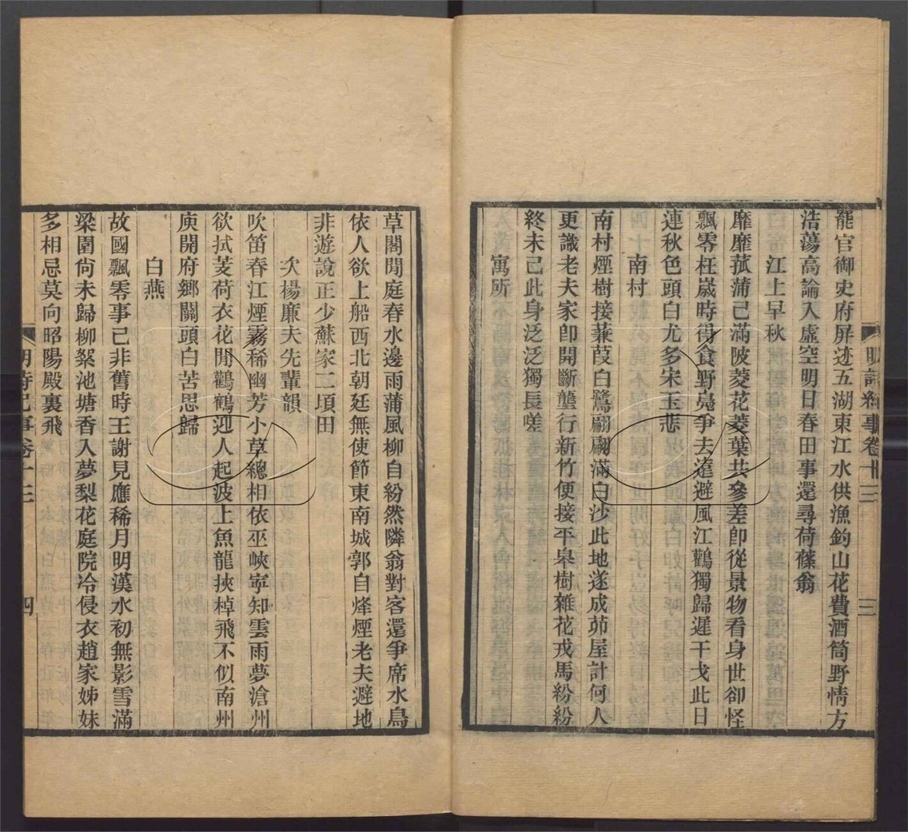 龍官御史府屏迹五湖東江水供漁釣山花費酒筒野情方
浩蕩高論入虛空明日春田事還尋荷蓧翁
江上早秋
靡靡菰蒲已滿陂菱花菱葉共參差卽從景物看身世卻怪
飄零枉歲時得食野鳧爭去遠避風江鸛獨歸遲干戈此日
連秋色頭白尤多宋玉悲
南村
南村煙樹接蒹葭白鷺翩翩滿白沙此地遂成茆屋計何人
更識老夫家卽開斷壟行新竹便接平皋樹雜花戎馬紛紛
終未已此身泛泛獨長嗟
寓所
明詩紀事卷十三
三
草閣閒庭春水邊雨蒲風柳自紛然隣翁對客還爭席水鳥
依人欲上船西北朝廷無使節東南城郭自烽煙老夫避地
非遊說正少蘇家二頃田
次楊廉夫先輩韻
吹笛春江煙霧稀幽芳小草總相依巫峽寧知雲雨夢滄州
欲拭芰荷衣花閒鸛鶴迎人起波上魚龍挾棹飛不似南州
庾開府鄉關頭白苦思歸
白燕
故國飄零事已非舊時王謝見應稀月明漢水初無影雪滿
梁園尙未歸柳絮池塘香入夢梨花庭院冷侵衣趙家姊妹
多相忌莫向昭陽殿裏飛
明詩紀事卷十三
四